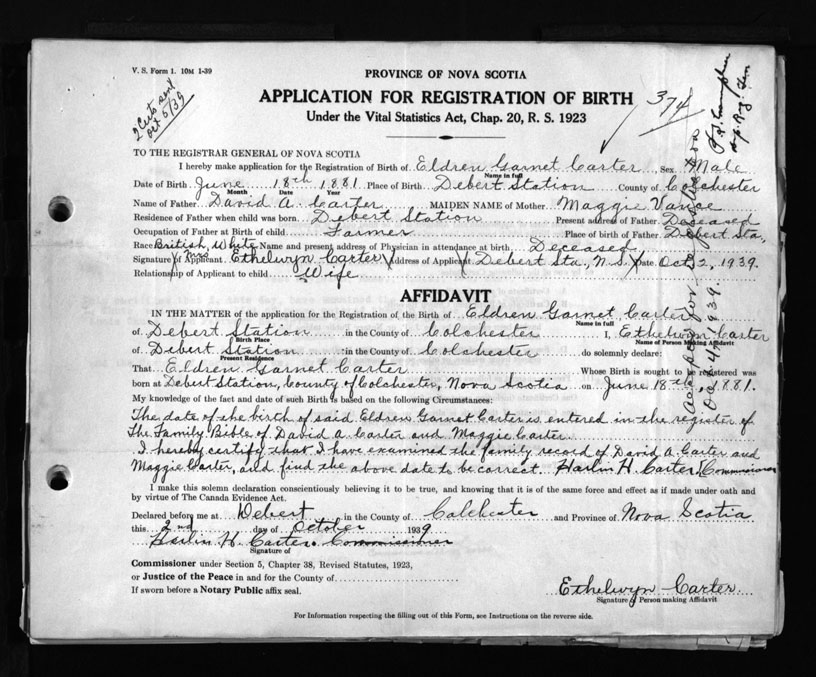 V. S. Form 1. 10M 1-39
2 Certs sent
Oct 5/39
PROVINCE OF NOVA SCOTIA
APPLICATION FOR REGISTRATION OF BIRTH
374
Under the Vital Statistics Act, Chap. 20, R. S. 1923
TO THE REGISTRAR GENERAL OF NOVA SCOTIA
I hereby make application for the Registration of Birth of Eldren Garnet Carter Sex Male
Name in full
Date of Birth June 18th 1881 Place of Birth Debert Station County of Colchester
Month Date Year
Name of Father David A. Carter MAIDEN NAME of Mother Maggie Vance
Residence of Father when child was born Debert Station Present address of Father Deceased
Occupation of Father at Birth of child Farmer Place of birth of Father Debert Sta,
Race British White Name and present address of Physician in attendance at birth Deceased
Signature of Applicant Mrs Ethelwyn Carter Address of Applicant Debert Sta, N.S. Date Oct 2, 1939.
Relationship of Applicant to child Wife
AFFIDAVIT
IN THE MATTER of the application for the Registration of the Birth of Eldren Garnet Carter
Name in full
of Debert Station in the County of Colchester I, Ethelwyn Carter
Birth Place Name of Person Making Affidavit
of Debert Station in the County of Colchester do solemnly declare:
Present Residence
That Eldren Garnet Carter Whose Birth is sought to be registered was
born at Debert Station, County of Colchester, Nova Scotia on June 18th, 1881.
My knowledge of the fact and date of such Birth is based on the following Circumstances:
The date of the birth of said Eldren Garnet Carter is entered in the register of
The Family Bible of David A. Carter and Maggie Carter.
I hereby certify that I have examined the family record of David A. Carter and
Maggie Carter, and find the above date to be correct. Harlin H. Carter, Commissioner
I make this solemn declaration conscientiously believing it to be true, and knowing that it is of the same force and effect as if made under oath and
by virtue of The Canada Evidence Act.
Declared before me at Debert in the County of Colchester and Province of Nova Scotia
this 2nd day of October 1939
Harlin H. Carter. Commissioner
Signature of
Commissioner under Section 5, Chapter 38, Revised Statutes, 1923,
or Justice of the Peace in and for the County of
If sworn before a Notary Public affix seal.
Ethelwyn Carter.
Signature of Person making Affidavit
For Information respecting the filling out of this Form, see Instructions on the reverse side.
Accepted for registration
Oct 4th 1939.